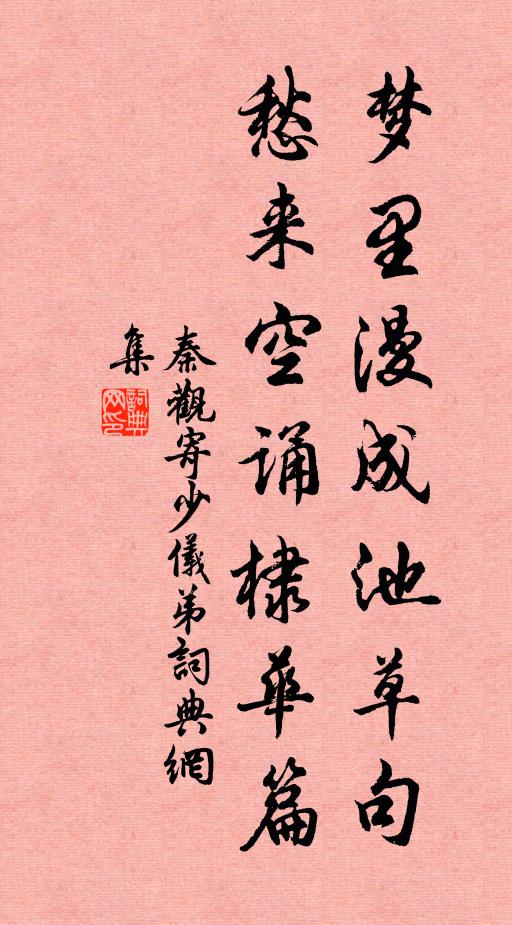 梦里漫成池草句
愁来空诵棣华篇
秦觀寄少儀弟詞典網
集
詞典
网印